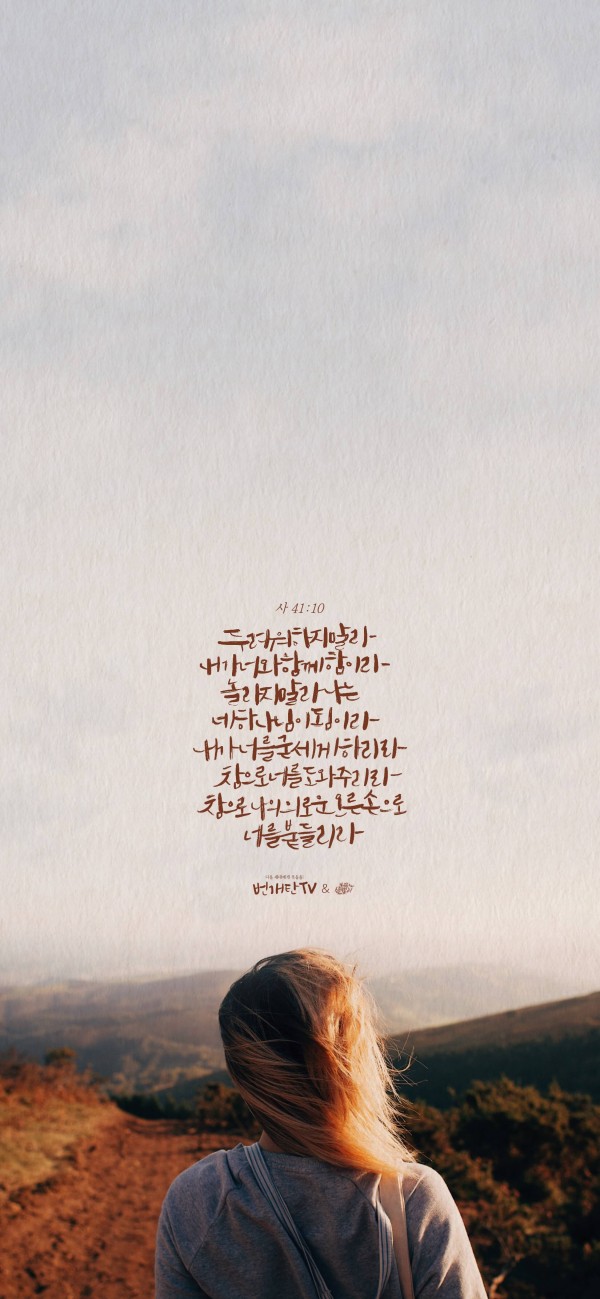 사 41:10
두려워하지말라
내가너와함께함이라
놀라지말라나는
네하나님이됨이라
내가너를굳세게하리라
참으로너를도와주리라
참으로나의의로운오른손으로
너를붙들리라
번개탄TV &